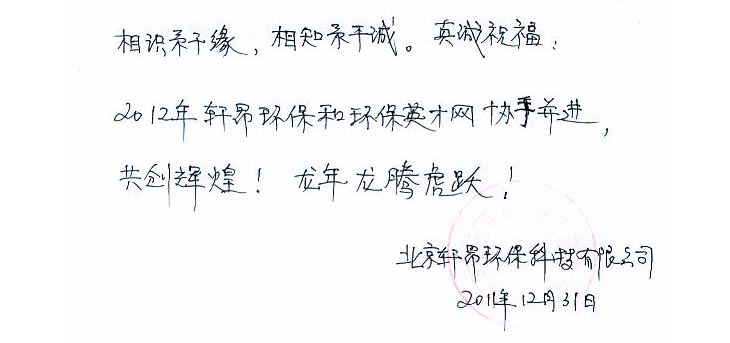 相识系于缘，相知系于诚。真诚祝福：
2012年轩昂环保和环保英才网协手并进，
共创辉煌！龙年龙腾虎跃！
北京轩昂环保科技有限公司
2011年12月31日